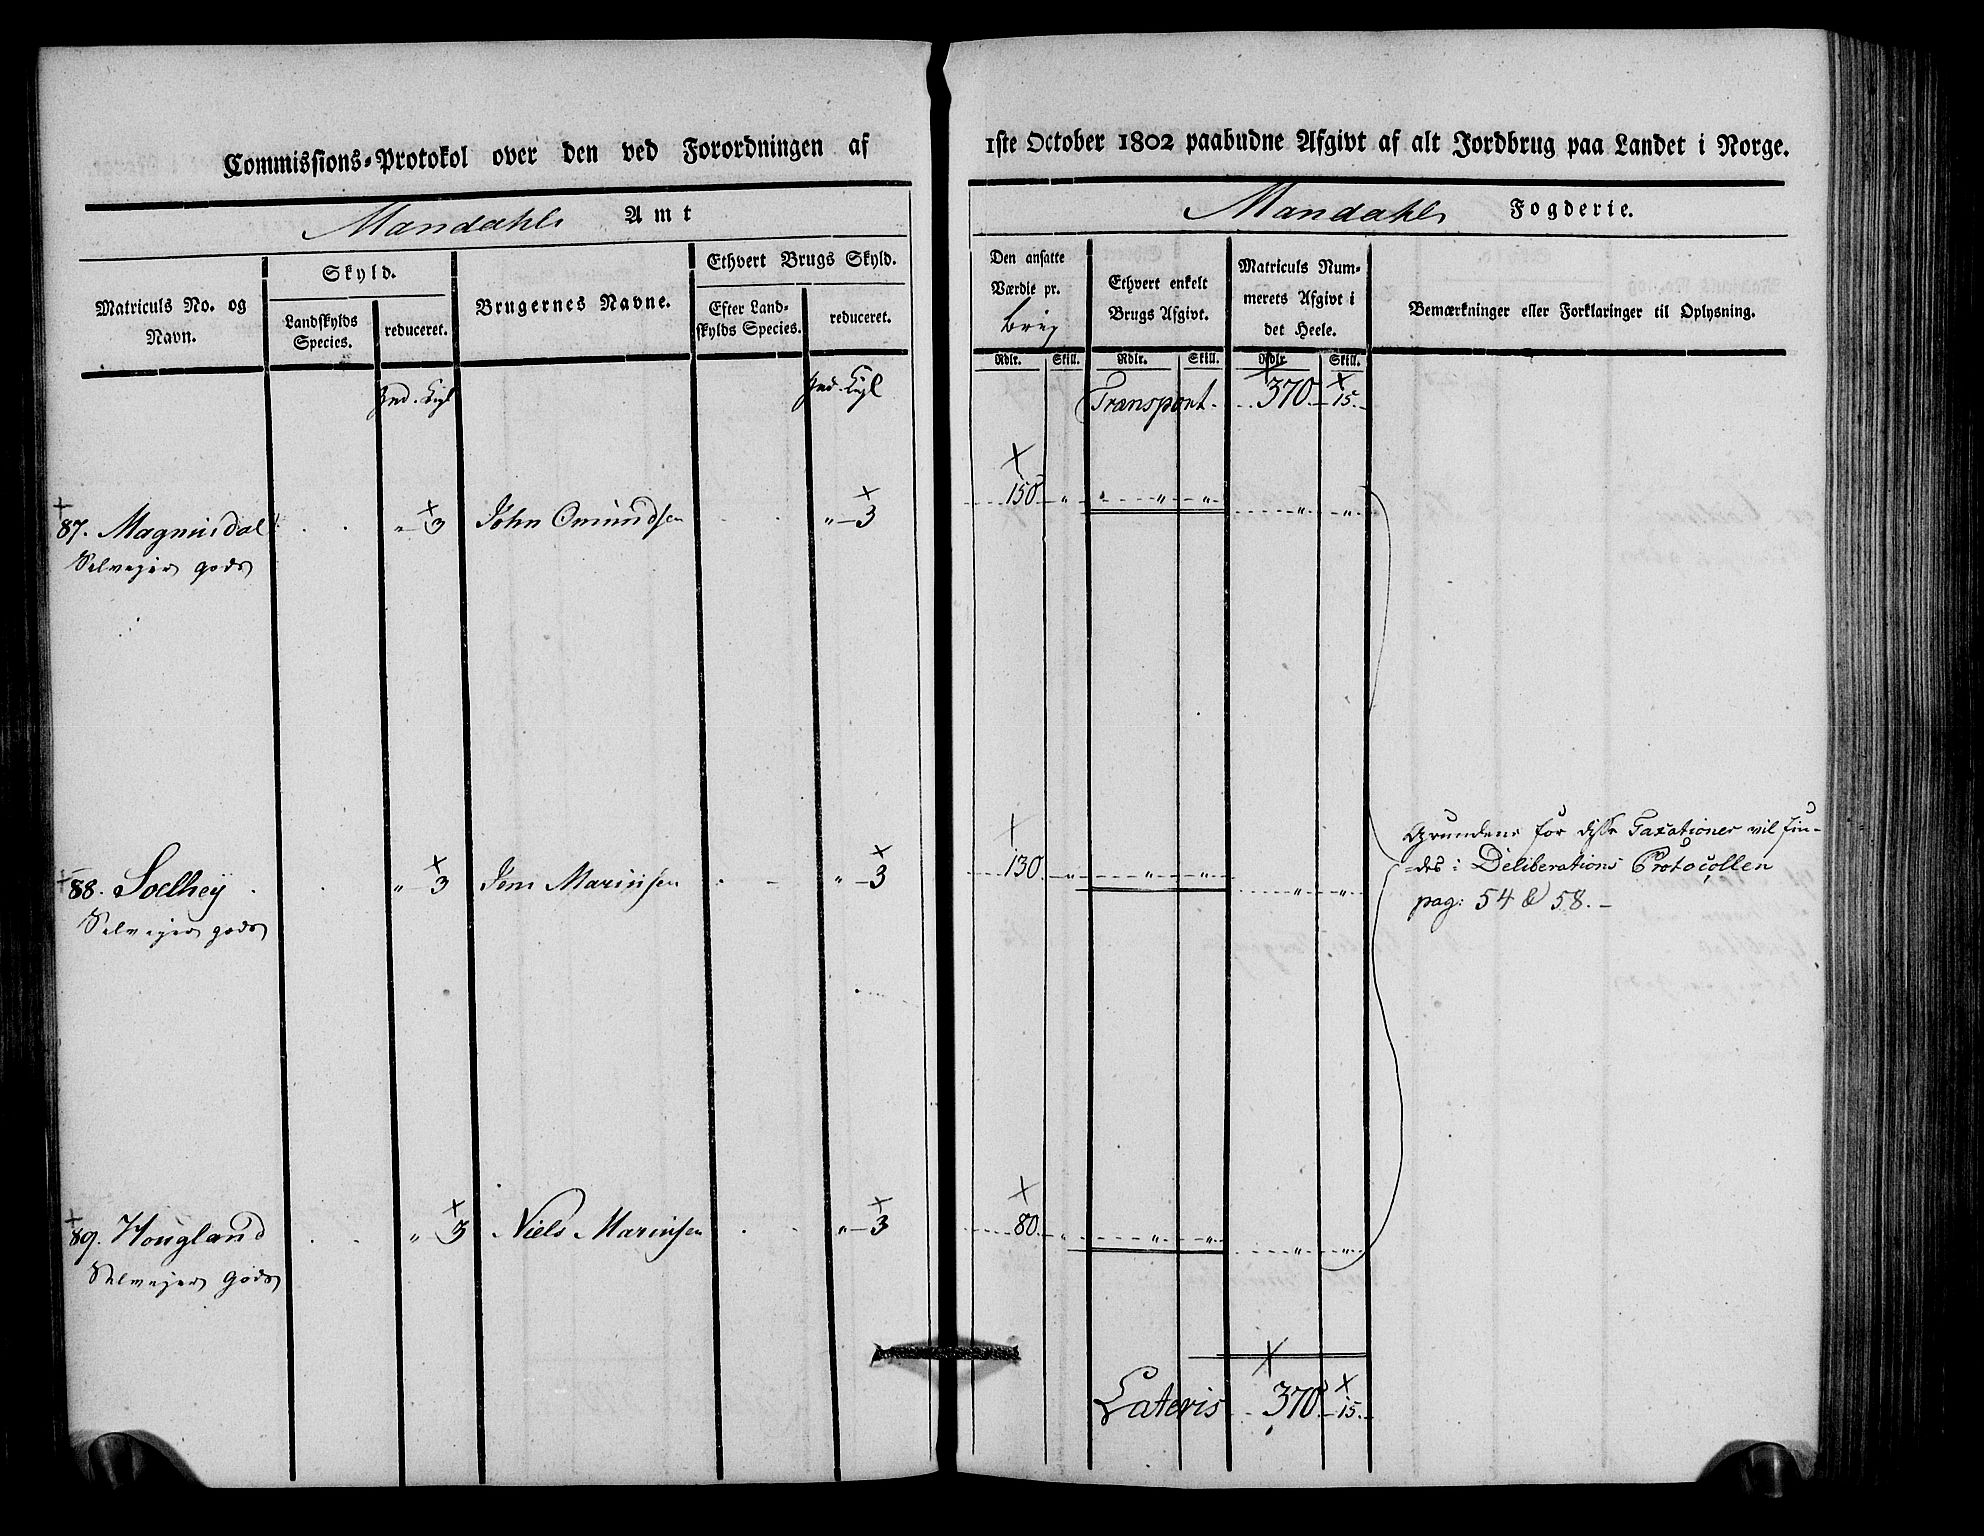 Commissions-Protokol over den ved Forordningen af 1ste October 1802 paabudne Afgivt af alt Jordbrug paa Landet i Norge.
Mandahls Amt
Mandahls Fogderie.
Matriculs No. og Navn.
Skyld.
Landskylds Species.
reduceret.
Brugernes Navne.
Ethvert Brugs Skyld.
Efter Landskylds Species.
reduceret.
Den ansatte Værdie pr. brug
Ethvert enkelt Brugs Afgivt.
Matriculs Nummerets Afgivt i det Heele.
Bemærkninger eller Forklaringer til Oplysning.
Rdlr. Skill. Rdlr. Skill. Rdlr. Skill.
Transport. 370. 15.
87. Magnusdal " 3 John Omundsen " 3 150 " " " " " "
Selvejer gods
88. Soelhey " 3 Jens Mariusen " 3 130 " " " " " "
Selvejer gods
Grundene for disse Taxationer vil fin-
des i Deliberations Protocollen
pag: 54 & 58. -
89. Hougland " 3 Niels Mariusen " 3 80. " " " " "
Selvejer gods
Lateris 370. 15.